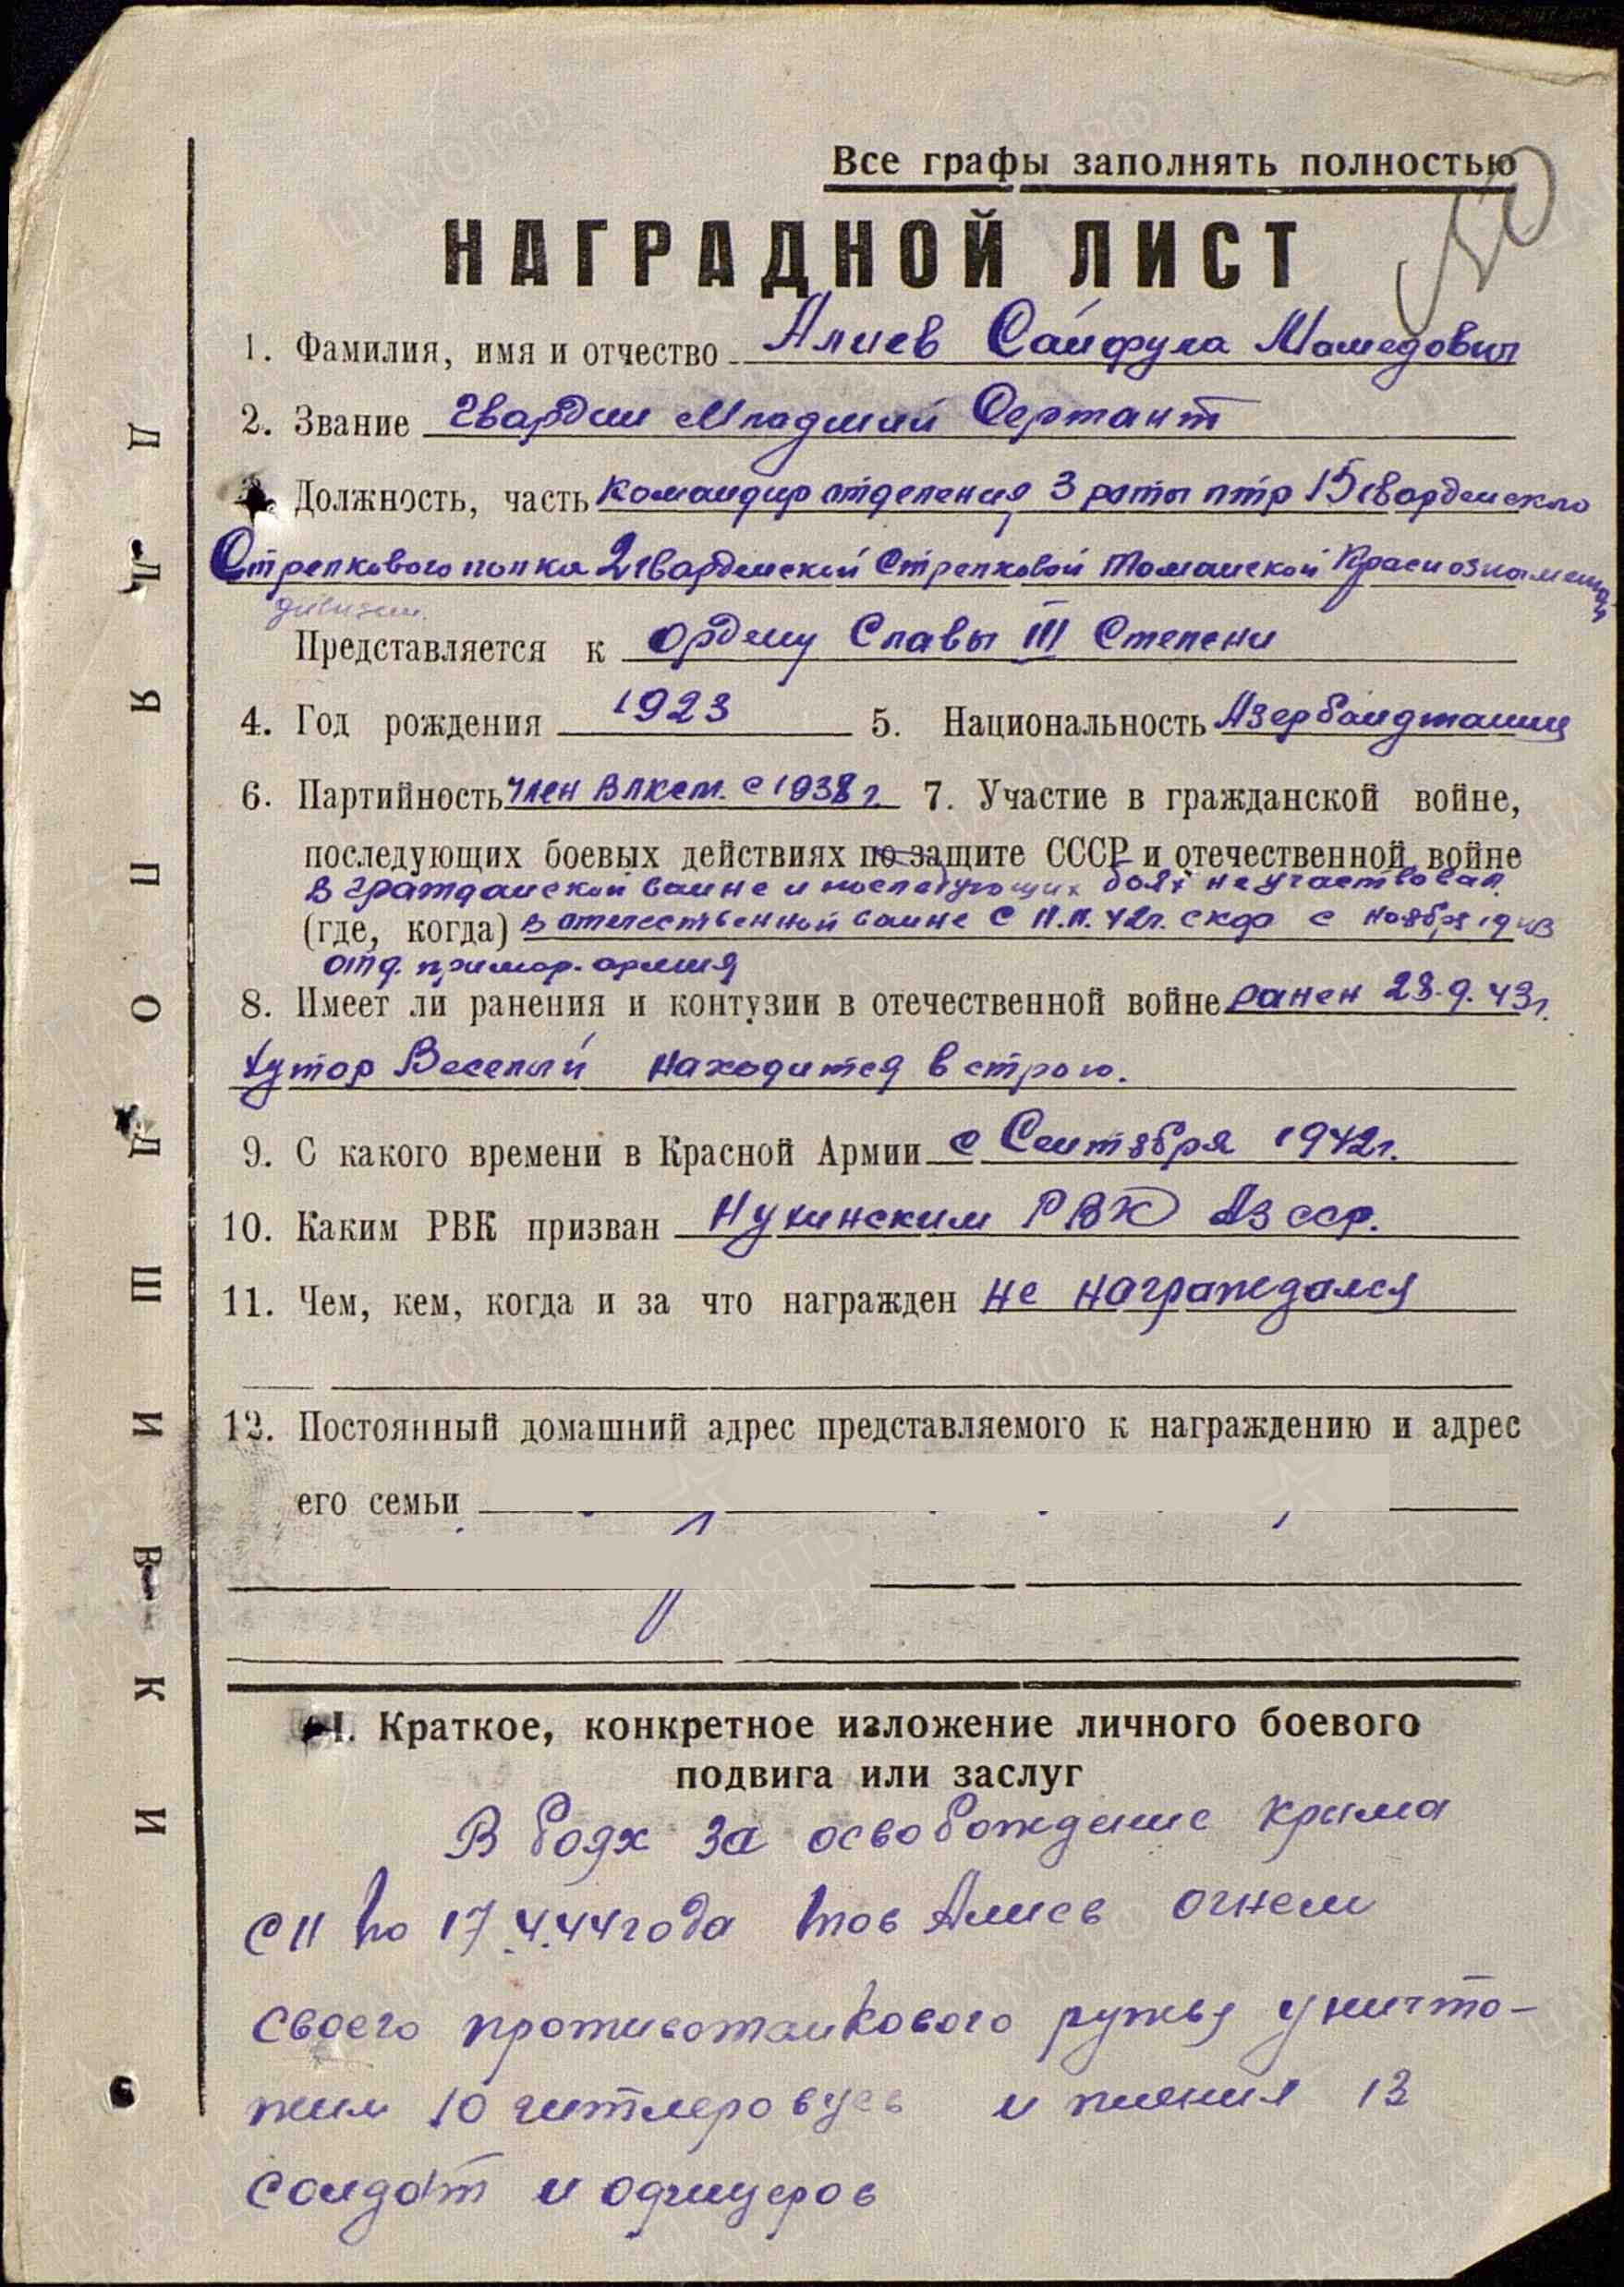 Все графы заполнять полностью
50
НАГРАДНОЙ ЛИСТ
1. Фамилия, имя и отчество Алиев Сайфула Мамедович
2. Звание Гвардии Младший Сержант
3. Должность, часть Командир отделения 3 роты птр 15 гвардейского
Стрелкового полка 2 гвардейской Стрелковой Таманской Краснознаменной
дивизии.
Представляется к Ордену Славы III Степени
4. Год рождения 1923 5. Национальность Азербайджанец
6. Партийность член Влксм. с 1938 г. 7. Участие в гражданской войне,
последующих боевых действиях по защите СССР и отечественной войне
В гражданской войне и последующих боях не участвовал
(где, когда) в отечественной войне с 11.11.42г. скф с ноября 1943
отд. примор. армия
8. Имеет ли ранения и контузии в отечественной войне ранен 28.9.43г.
хутор Веселый находится в строю.
9. С какого времени в Красной Армии с Сентября 1942г.
10. Каким РВК призван Нухинским РВК Аз сср.
11. Чем, кем, когда и за что награжден не награждался
12. Постоянный домашний адрес представляемого к награждению и адрес
его семьи
I. Краткое, конкретное изложение личного боевого
подвига или заслуг
В боях за освобождение Крыма
с 11 по 17.4.44 года тов Алиев огнем
своего противотанкового ружья уничто-
жил 10 гитлеровцев и пленил 13
солдат и офицеров
ДЛЯ ПОДШИВКИ